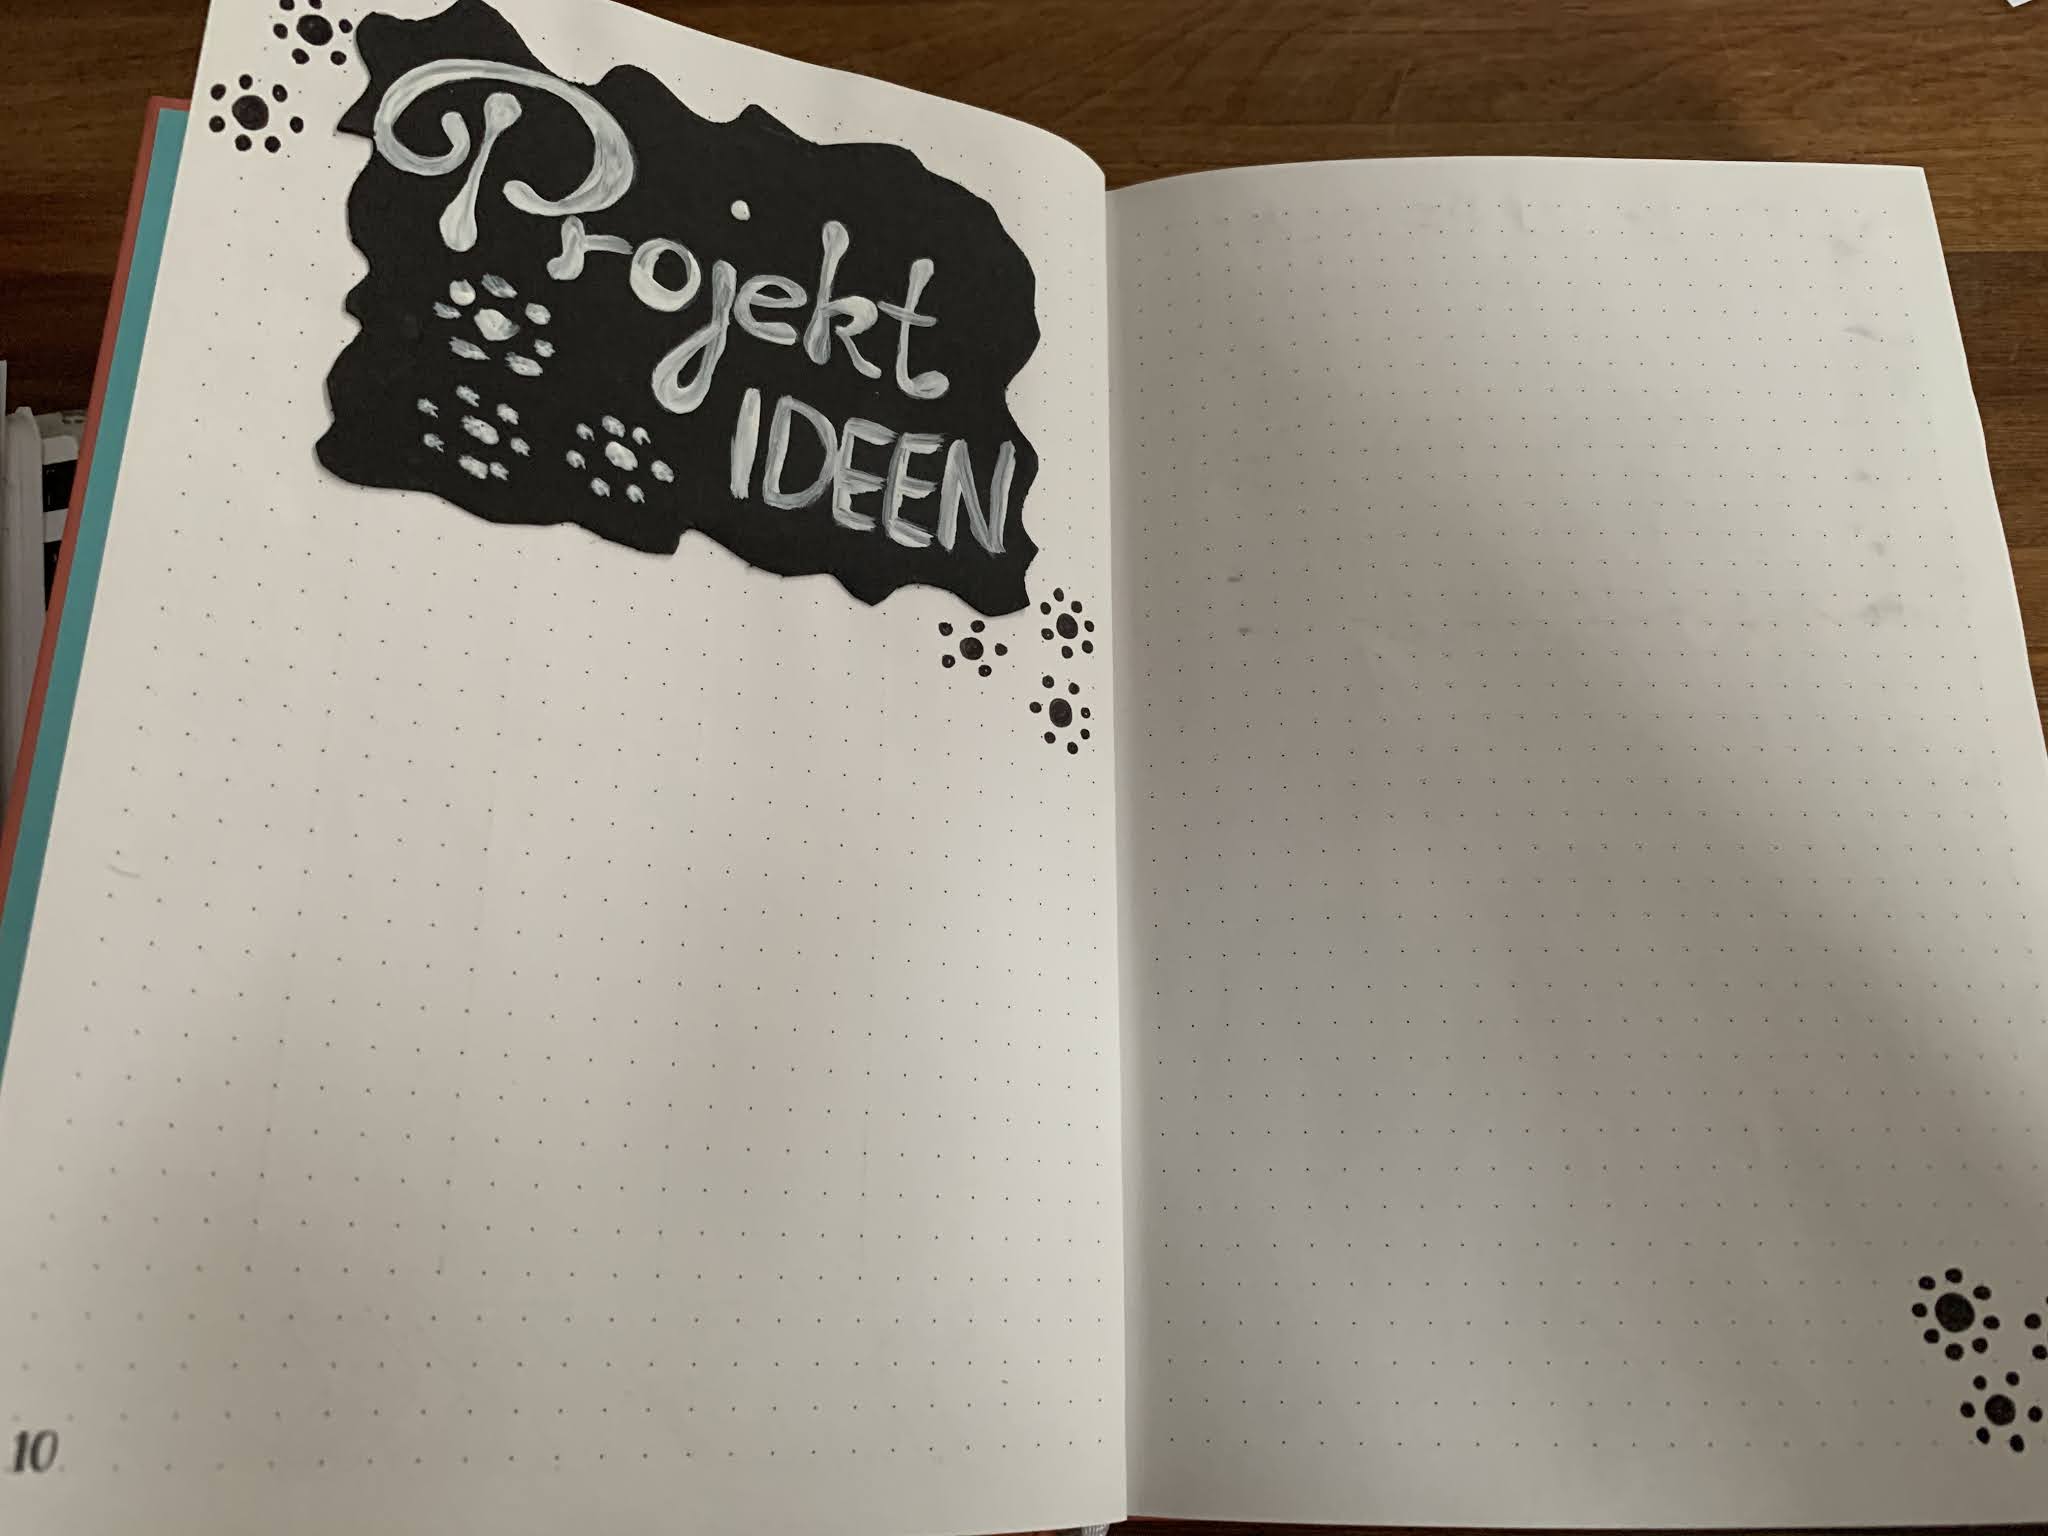 Projekt
IDEEN
10